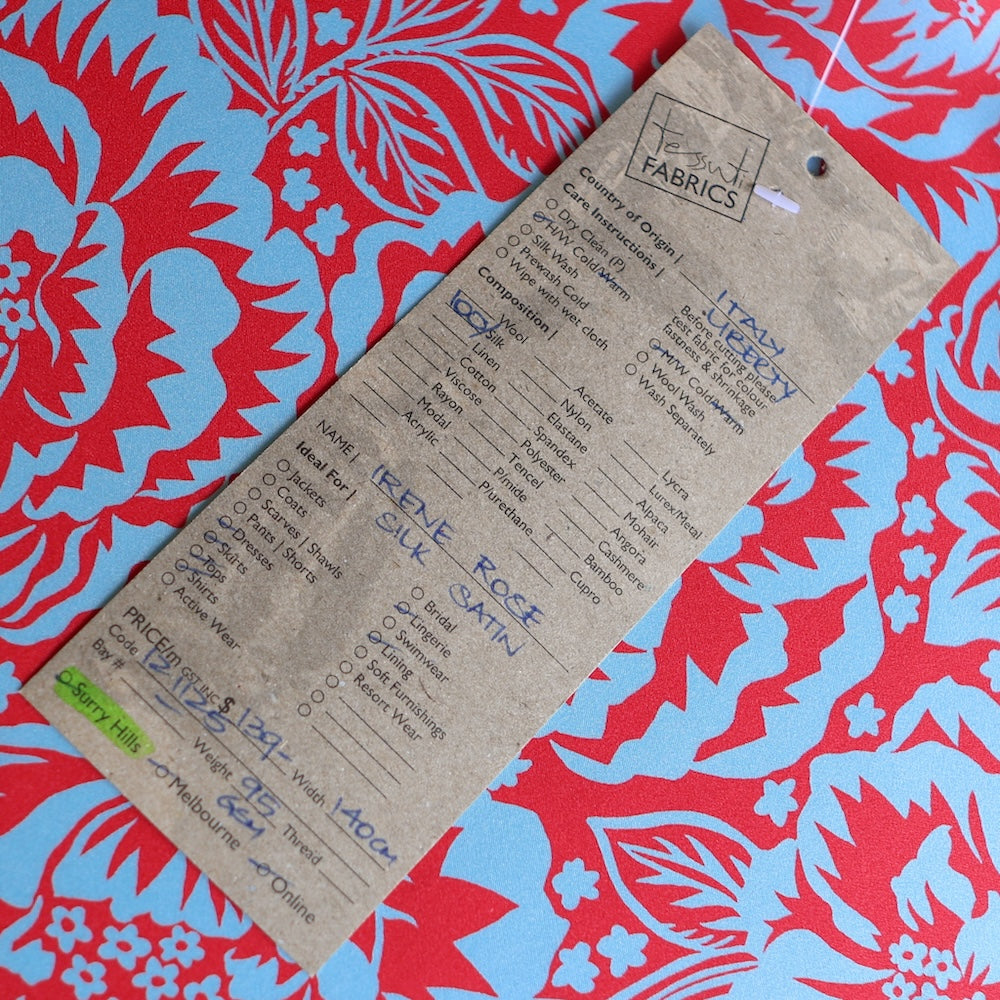 Tessuti
FABRICS
Country of Origin | ITALY
LIBERTY
Care Instructions |
Dry Clean (P)
H/W Cold/Warm
Silk Wash
Prewash Cold
Wipe with wet cloth
Before cutting please
test fabric for colour
fastness & shrinkage
M/W Cold/Warm
Wool Wash
Wash Separately
Composition |
Wool
100% Silk
Linen
Cotton
Viscose
Rayon
Modal
Acrylic
Acetate
Nylon
Elastane
Spandex
Polyester
Tencel
P/mide
P/urethane
Lycra
Lurex/Metal
Alpaca
Mohair
Angora
Cashmere
Bamboo
Cupro
NAME | IRENE ROSE
SILK SATIN
Ideal For |
Jackets
Coats
Scarves | Shawls
Pants | Shorts
Dresses
Skirts
Tops
Shirts
Active Wear
Bridal
Lingerie
Swimwear
Lining
Soft Furnishings
Resort Wear
PRICE/m GST INC $ 139- Width 140cm
Code 121125 Weight 95 GSM Thread
Bay #
Surry Hills Melbourne Online